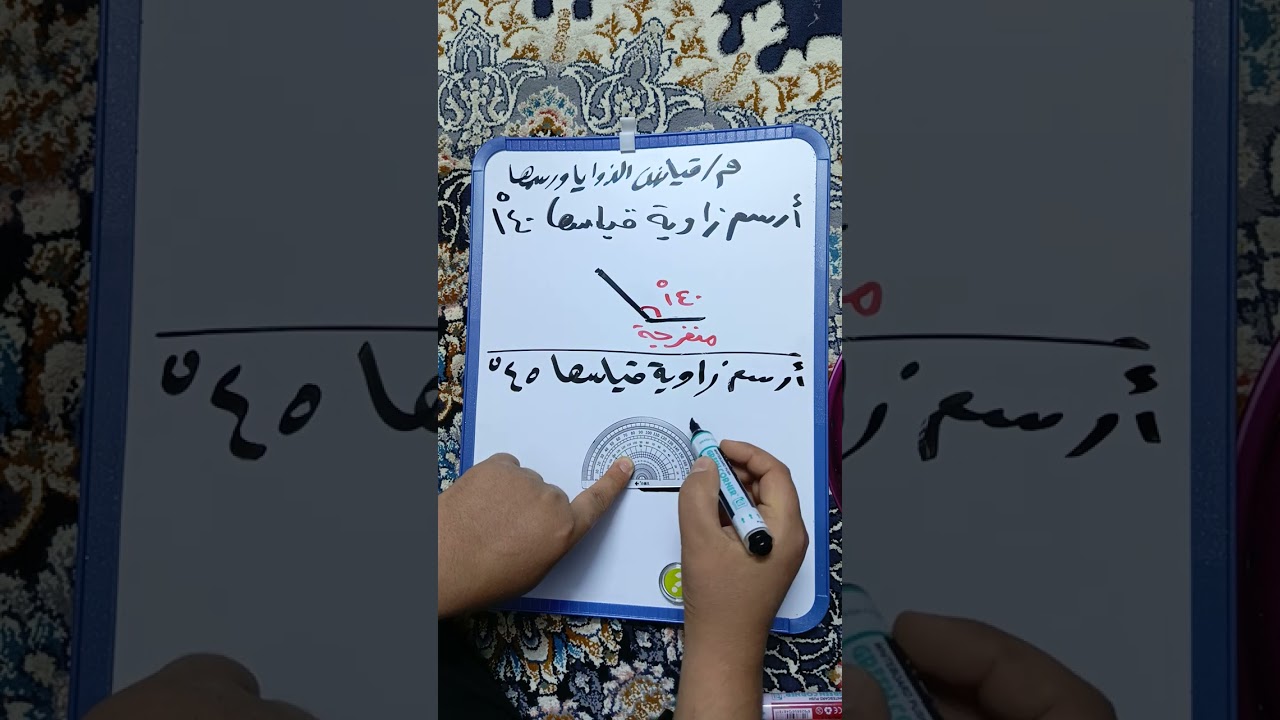 م/ قياس الزوايا ورسمها
أرسم زاوية قياسها ١٤٠°
١٤٠°
منفرجة
أرسم زاوية قياسها ٤٥°